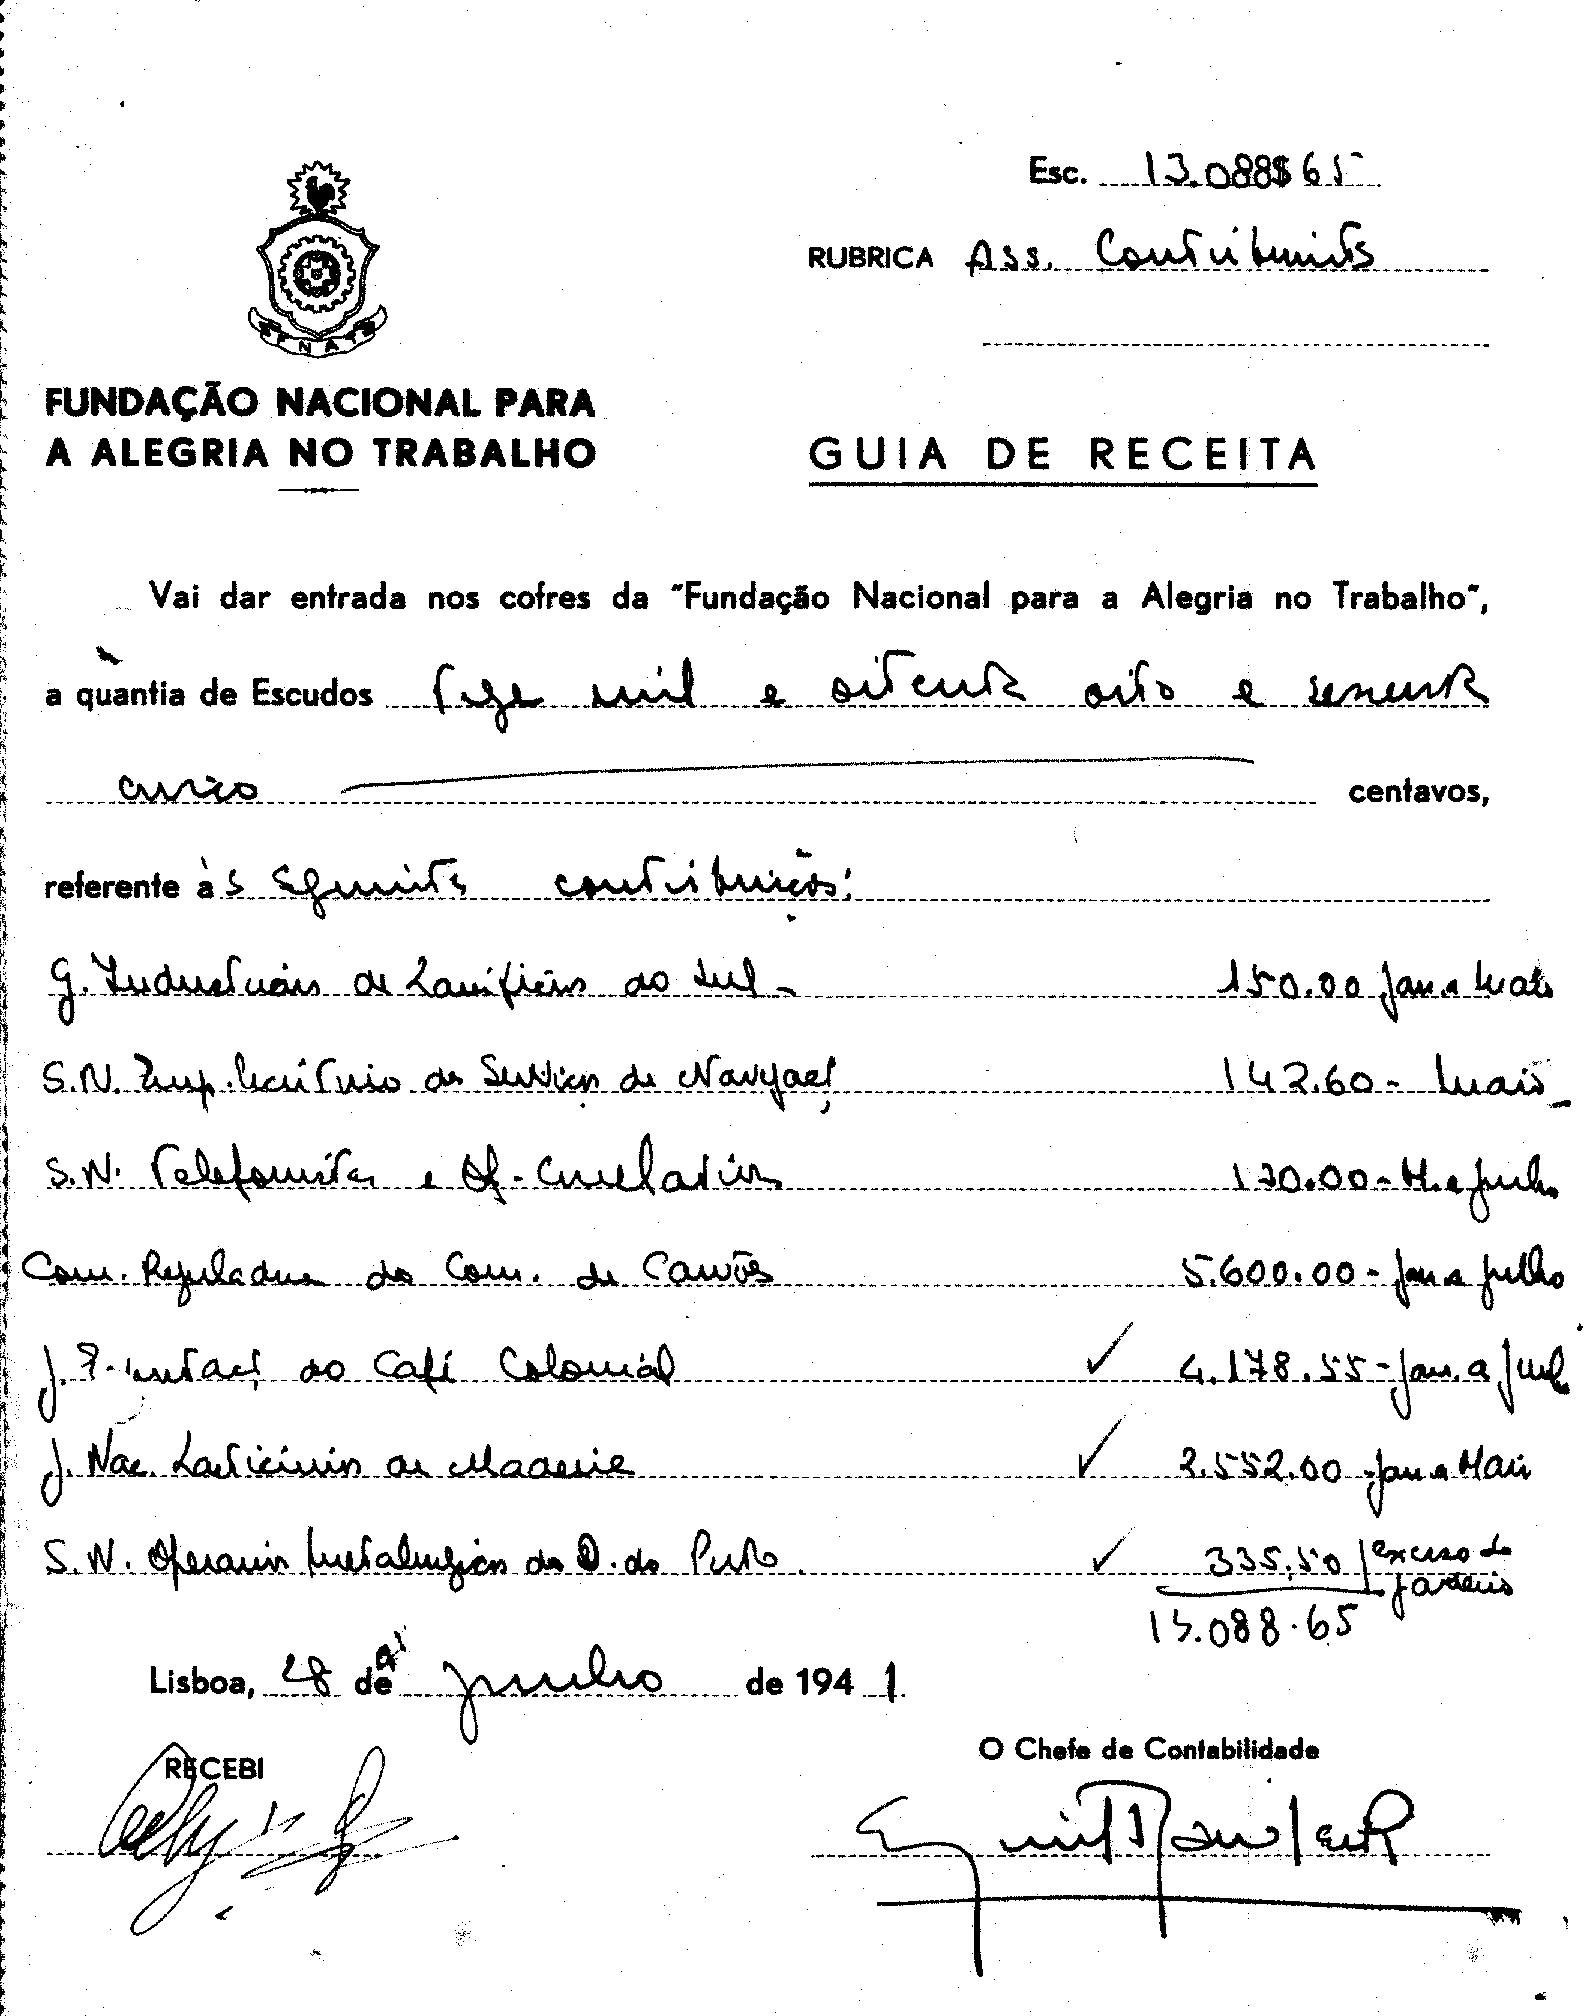 Esc. 13.088$65
RUBRICA Ass. Contribuints
FNAT
FUNDAÇÃO NACIONAL PARA
A ALEGRIA NO TRABALHO
GUIA DE RECEITA
Vai dar entrada nos cofres da "Fundação Nacional para a Alegria no Trabalho",
a quantia de Escudos treze mil e oitenta oito e sessenta
cinco centavos,
referente às seguintes contribuições:
G. Industriais de Lanificios do Sul - 150.00 Jan a Maio
S.N. Emp. Escritorio de Serviços de Navegaç, 142.60 - Maio
S.N. Telefonistas e Of. Correlativos 130.00 - M. e Junho
Com. Reguladora do Com. de Carvões 5.600.00 - Jan a Julho
J. Exportaç, do Café Colonial ✓ 4.178.55 - Jan. a Junh
J. Nac. Lacticinios da Madeira ✓ 2.552.00 - Jan a Maio
S.N. Operarios Metalurgicos do D. do Porto. ✓ 335.50 excesso de
Janeiro
13.088.65
Lisboa, 28 de junho de 1941
RECEBI
O Chefe de Contabilidade